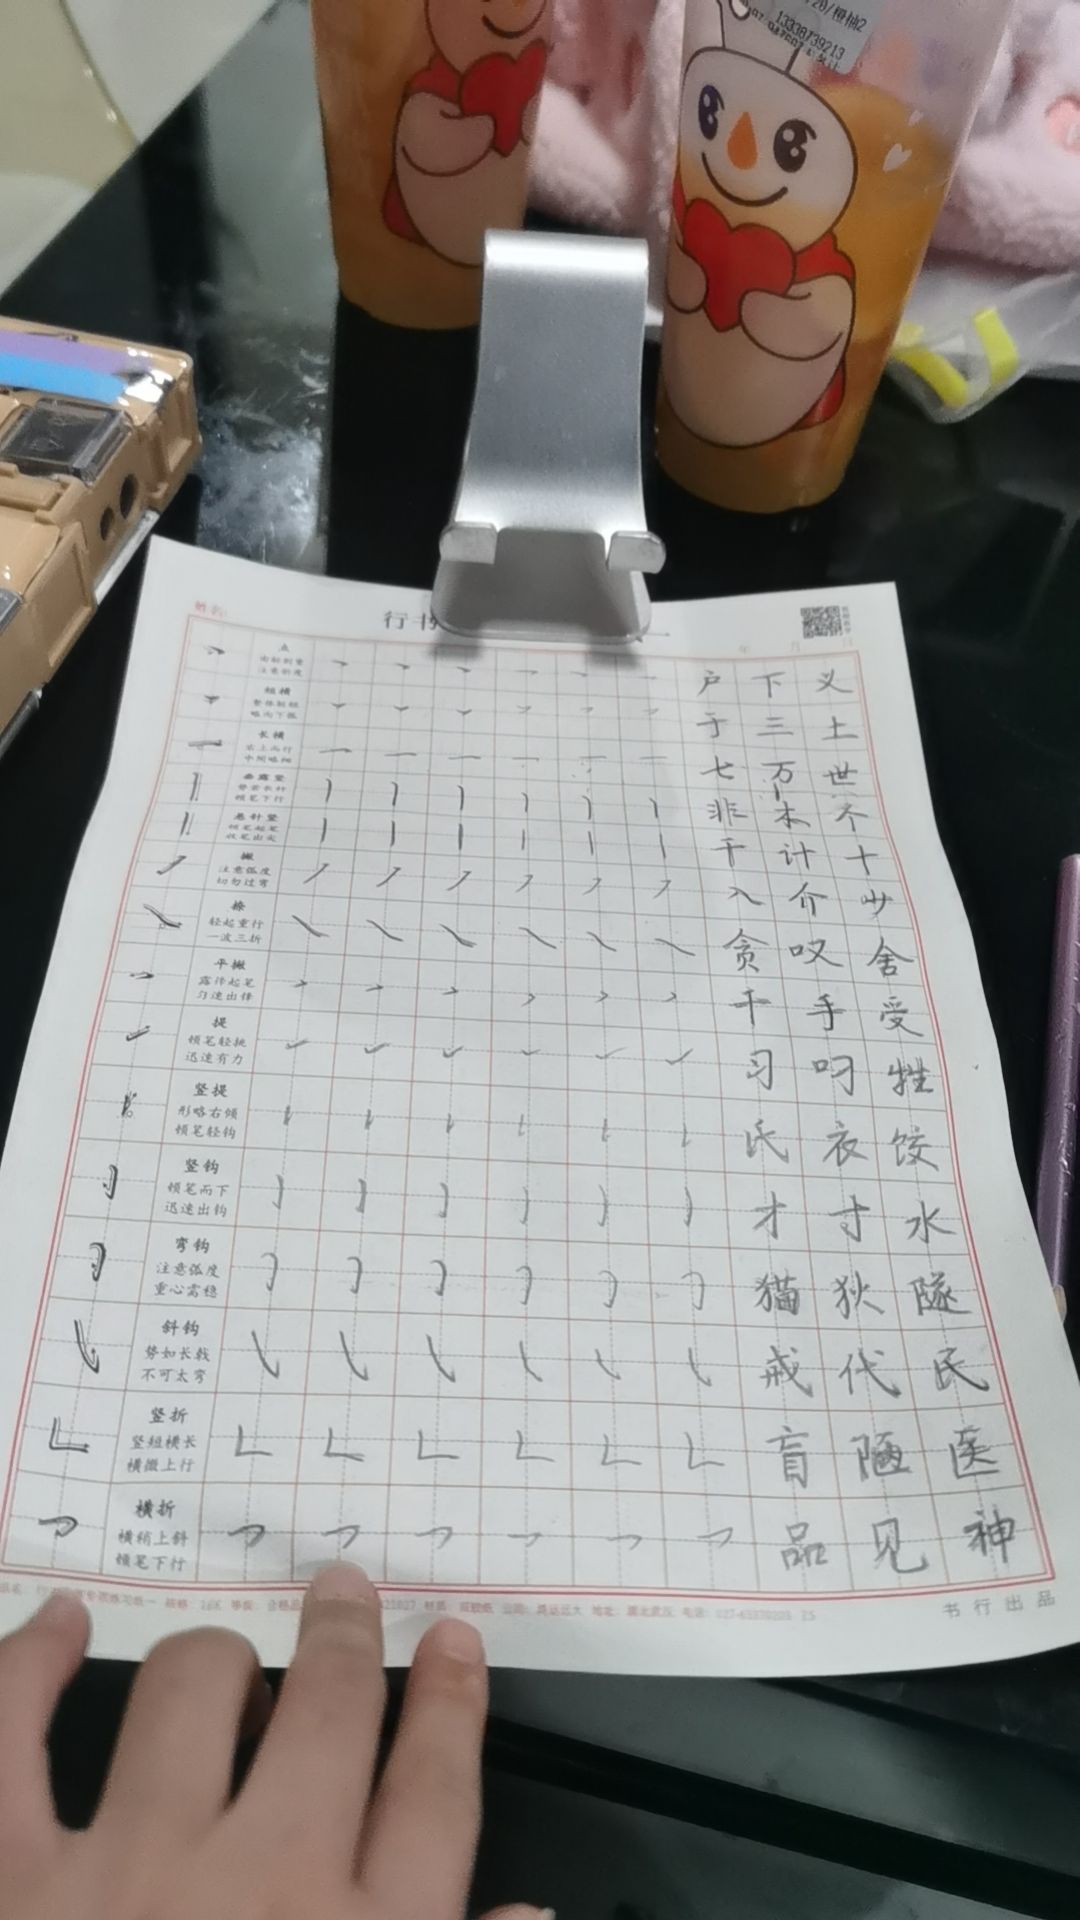 橙柚2
13338739213
姓名:
行书
年 月 日
点
注意斜度
户 下 义
短横
整体粗短
略向下弧
于 三 土
长横
右上而行
中间略细
七 万 世
垂露竖
顿笔下行
非 木 不
悬针竖
顿笔起笔
收笔出尖
干 计 十
撇
注意弧度
切勿过弯
入 介 少
捺
轻起重行
一波三折
贪 叹 舍
平撇
露锋起笔
匀速出锋
千 手 受
提
顿笔轻挑
迅速有力
习 叼 牲
竖提
形略右倾
顿笔轻钩
氏 衣 饺
竖钩
顿笔而下
迅速出钩
才 寸 水
弯钩
注意弧度
重心需稳
猫 狄 隧
斜钩
势如长戟
不可太弯
戒 代 民
竖折
竖短横长
横微上行
盲 陋 医
横折
横稍上斜
顿笔下行
品 见 神
书行出品